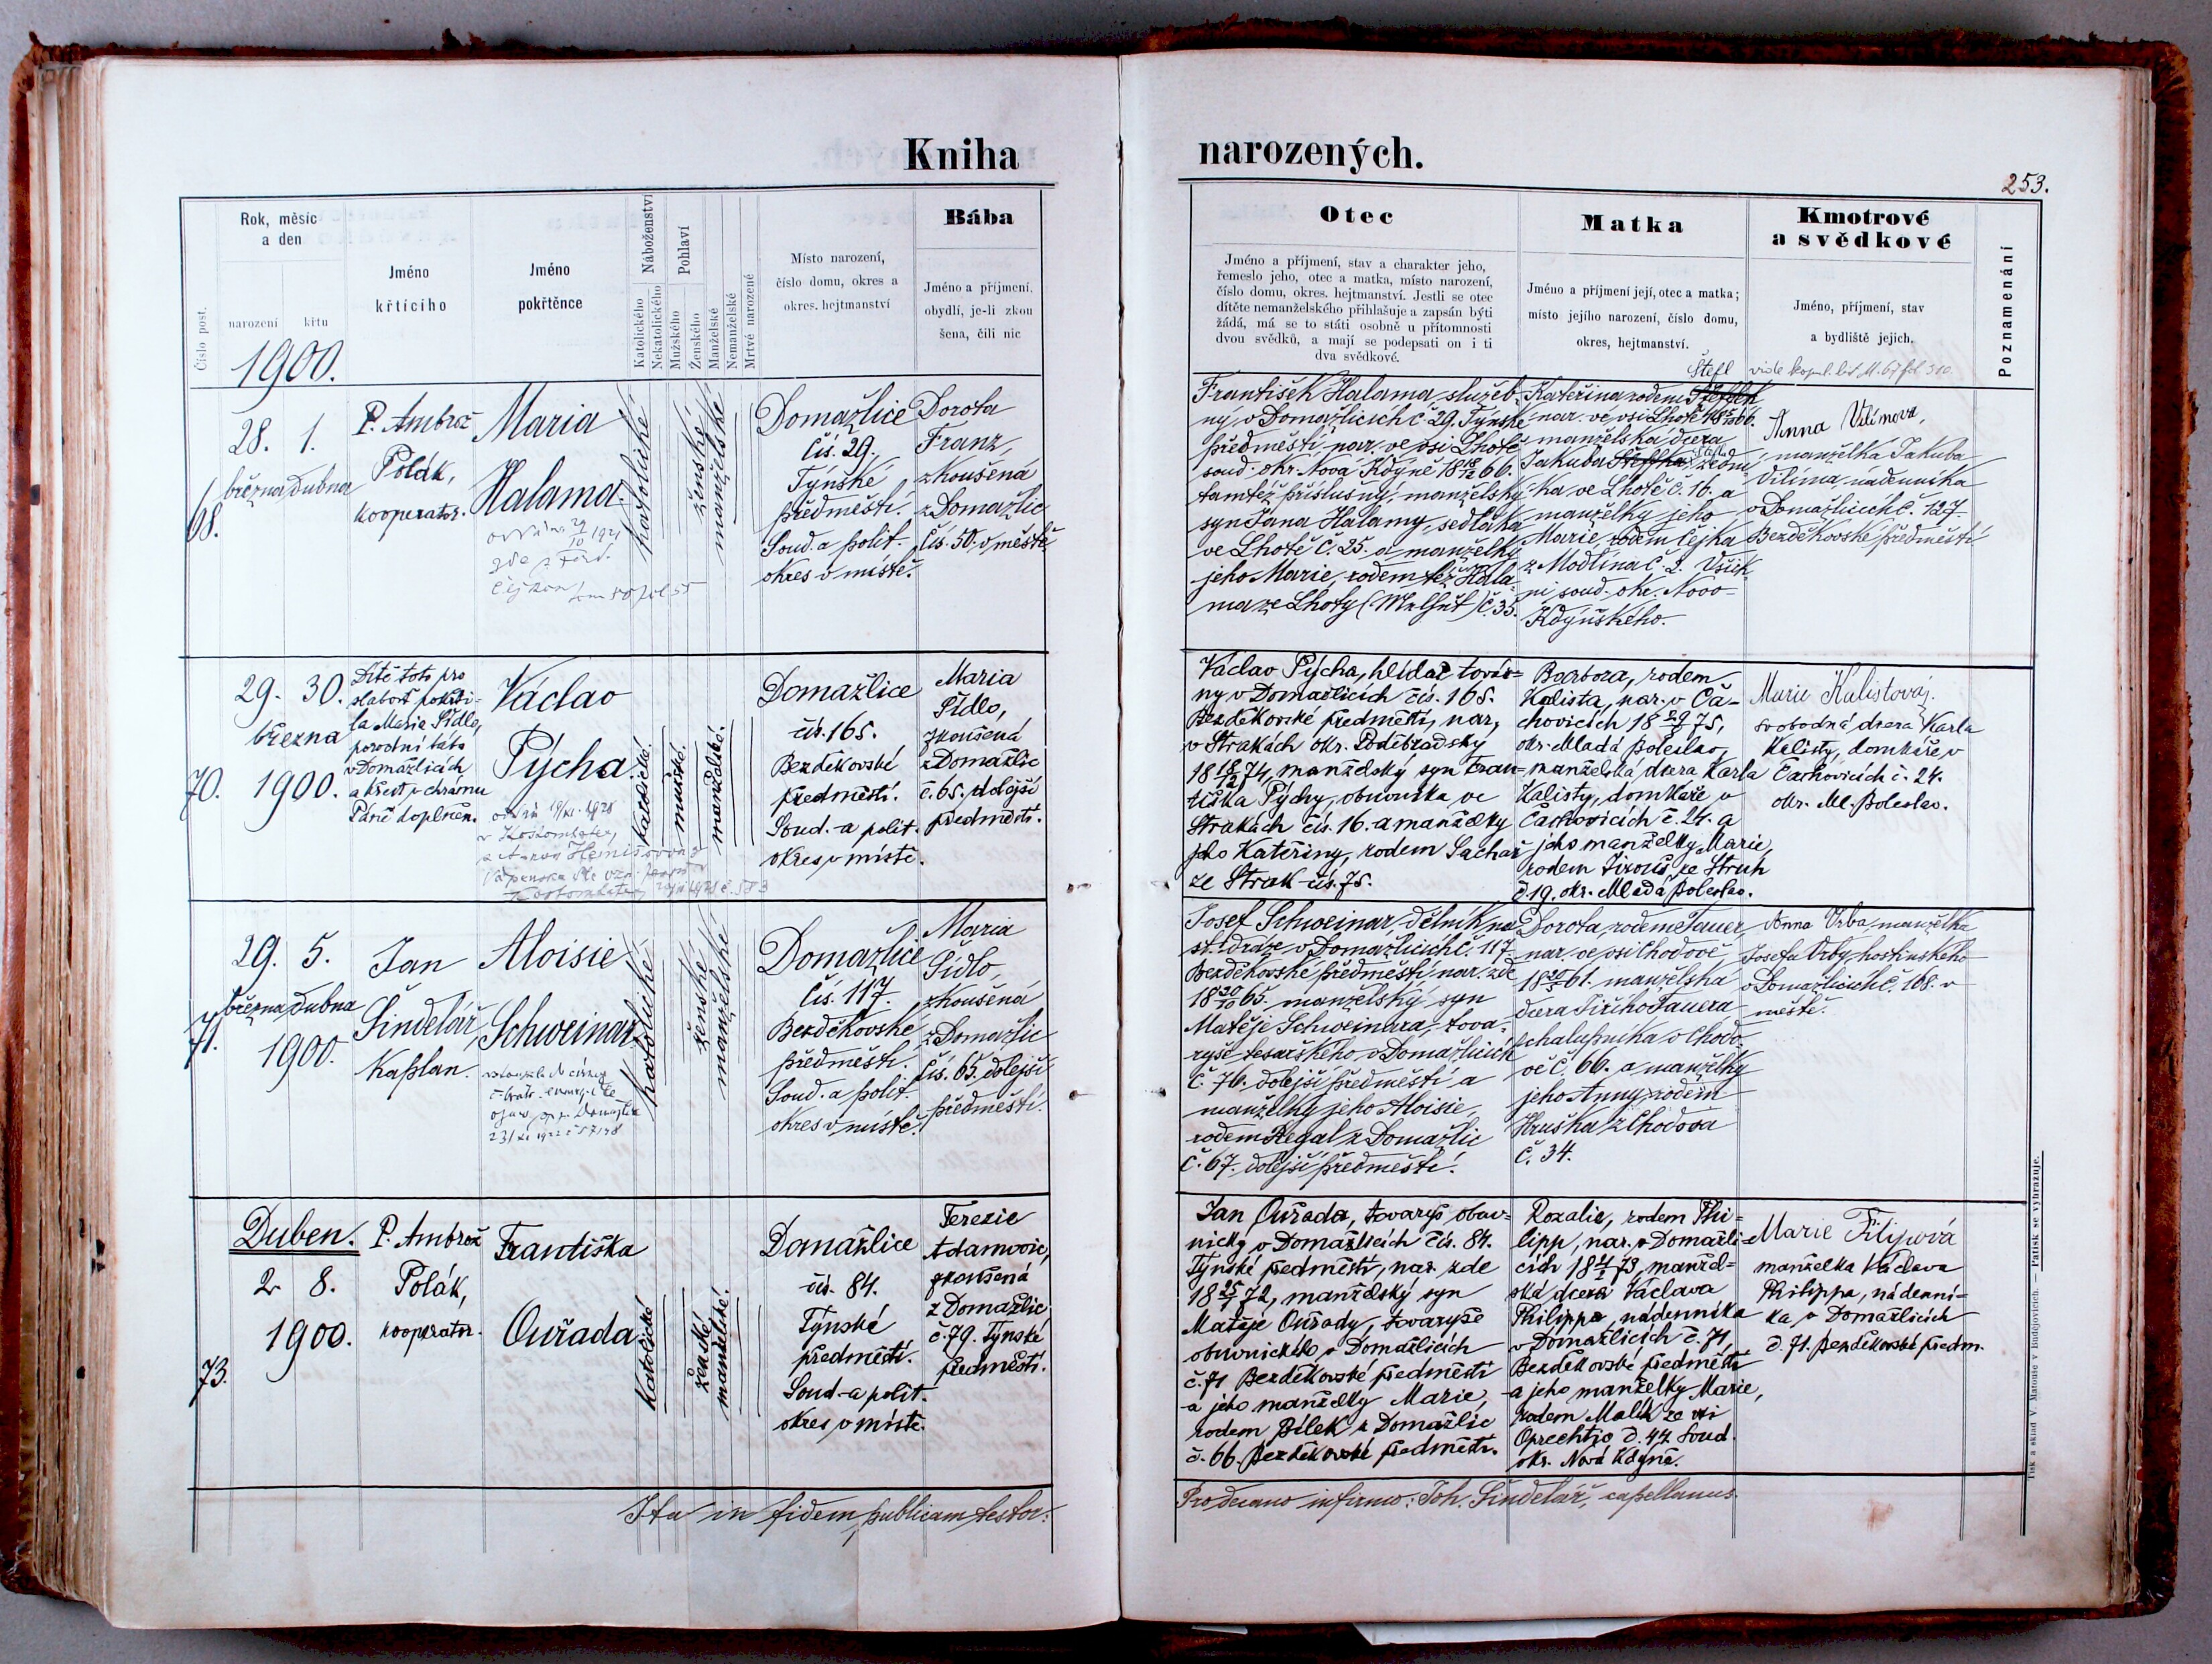 Kniha
narozených.
253.
Číslo post.
Rok, měsíc
a den
narození
křtu
1900.
Jméno
křtícího
Jméno
pokřtěnce
Náboženství
Katolického
Nekatolického
Pohlaví
Mužského
Ženského
Manželské
Nemanželské
Mrtvě narozené
Místo narození,
číslo domu, okres a
okres. hejtmanství
Bába
Jméno a příjmení,
obydlí, je-li zkou
šena, čili nic
Otec
Jméno a příjmení, stav a charakter jeho,
řemeslo jeho, otec a matka, místo narození,
číslo domu, okres. hejtmanství. Jestli se otec
dítěte nemanželského přihlašuje a zapsán býti
žádá, má se to státi osobně u přítomnosti
dvou svědků, a mají se podepsati on i ti
dva svědkové.
Matka
Jméno a příjmení její, otec a matka;
místo jejího narození, číslo domu,
okres, hejtmanství.
Kmotrové
a svědkové
Jméno, příjmení, stav
a bydliště jejich.
Poznamenání
68.
28. 1.
března dubna
P. Ambrož
Polák,
kooperator.
Maria
Halama.
katolické
ženské
manželské
Domažlice
čís. 29.
Týnské
předměstí.
Soud. a polit.
okres v místě.
Dorota
Franz,
zkoušená
z Domažlic
čís. 50. v městě
František Halama, služeb-
ný v Domažlicích č. 29. Týnské
předměstí, nar. ve vsi Lhotě
soud. okr. Nová Kdyně 18 18/12 66.
tamtéž příslušný, manželský
syn Jana Halamy, sedláka
ve Lhotě č. 25. a manželky
jeho Marie, rodem též Hala-
ma ze Lhoty č. 35.
Štefl
vide kopul. list
Kateřina rodem
nar. ve vsi Lhotě
manželská dcera
Jakuba
ka ve Lhotě č. 16. a
manželky jeho
Marie, rodem Čejka
z Modlína č. 2.
ni soud. okr. Novo-
Kdyňského.
Anna Vilímova,
manželka Jakuba
Vilíma nádenníka
v Domažlicích č. 127.
Bezděkovské předměstí
70.
29. 30.
března
1900.
Dítě toto pro
slabost pokřti-
la Marie Sídlo,
porodní bába
v Domažlicích
a křest v chrámu
Páně doplněn.
Václav
Pýcha
katolické
mužské.
manželské.
Domažlice
čís. 165.
Bezděkovské
předměstí.
Soud. a polit.
okres v místě.
Maria
Sídlo,
zkoušená
z Domažlic
č. 65. dolejší
předměstí.
Václav Pýcha, hlídač továr-
ny v Domažlicích čís. 165.
Bezděkovské předměstí, nar.
v Strakách okr. Poděbradský
18 18/2 74, manželský syn Fran-
tiška Pýchy, obuvníka ve
Strakách čís. 16. a manželky
jeho Kateřiny, rodem Sachař
ze Strak čís. 75.
Barbora, rodem
Kalista, nar. v Ča-
chovicích 18 29/ 75,
okr. Mladá Boleslav,
manželská dcera Karla
Kalisty, domkáře v
Čachovicích č. 24. a
jeho manželky Marie,
rodem Jirouš ze Struh
č. 19. okr. Mladá Boleslav.
Marie Kalistová,
svobodná dcera Karla
Kalisty, domkáře v
Čachovicích č. 24.
okr. Ml. Boleslav.
71.
29. 5.
března dubna
1900.
Jan
Šindelář,
kaplan.
Aloisie
Schweinar
katolické
ženské
manželské
Domažlice
čís. 117.
Bezděkovské
předměstí.
Soud. a polit.
okres v místě.
Maria
Sídlo,
zkoušená
z Domažlic
čís. 65. dolejší
předměstí.
Josef Schweinar, dělník na
st. dráze v Domažlicích č. 117
Bezděkovské předměstí, nar. zde
18 30/10 65. manželský syn
Matěje Schweinara, tova-
ryše tesařského v Domažlicích
č. 76. dolejší předměstí a
manželky jeho Aloisie,
rodem Regal z Domažlic
č. 67. dolejší předměstí.
Dorota rodem Tauer
nar. ve vsi Chodově
61. manželská
dcera Jiřího Tauera
chalupníka v Chodo-
vě č. 66. a manželky
jeho Anny rodem
Hruška z Chodova
č. 34.
Anna Vrba, manželka
Josefa Vrby
v Domažlicích č. 108. v
městě.
73.
Duben.
2 8.
1900.
P. Ambrož
Polák,
kooperator.
Františka
Ouřada
katolické
ženské
manželské.
Domažlice
čís. 84.
Týnské
předměstí.
Soud. a polit.
okres v místě.
Terezie
Adamovic,
zkoušená
z Domažlic
č. 79. Týnské
předměstí.
Jan Ouřada, tovaryš obuv-
nický v Domažlicích čís. 84.
Týnské předměstí, nar. zde
18 25/7 72, manželský syn
Matěje Ouřady, tovaryše
obuvnického v Domažlicích
č. 71 Bezděkovské předměstí
a jeho manželky Marie,
rodem Bílek z Domažlic
č. 66. Bezděkovské předměstí.
Rozalie, rodem Phi-
lipp, nar. v Domažli-
cích 18 4/1 73, manžel-
ská dcera Václava
Philippa, nádenníka
v Domažlicích č. 71,
Bezděkovské předměstí
a jeho manželky Marie,
rodem Malík ze vsi
Oprechtic č. 47. Soud.
okr. Nová Kdyně.
Marie Filipová
manželka Václava
Philippa, nádenní-
ka v Domažlicích
č. 71. Bezděkovské předm.
Ita in fidem publicam testor:
Pro decano infirmo: Joh. Šindelář, capellanus.
Tisk a sklad V. Matouše v Budějovicích. — Patisk se vyhrazuje.